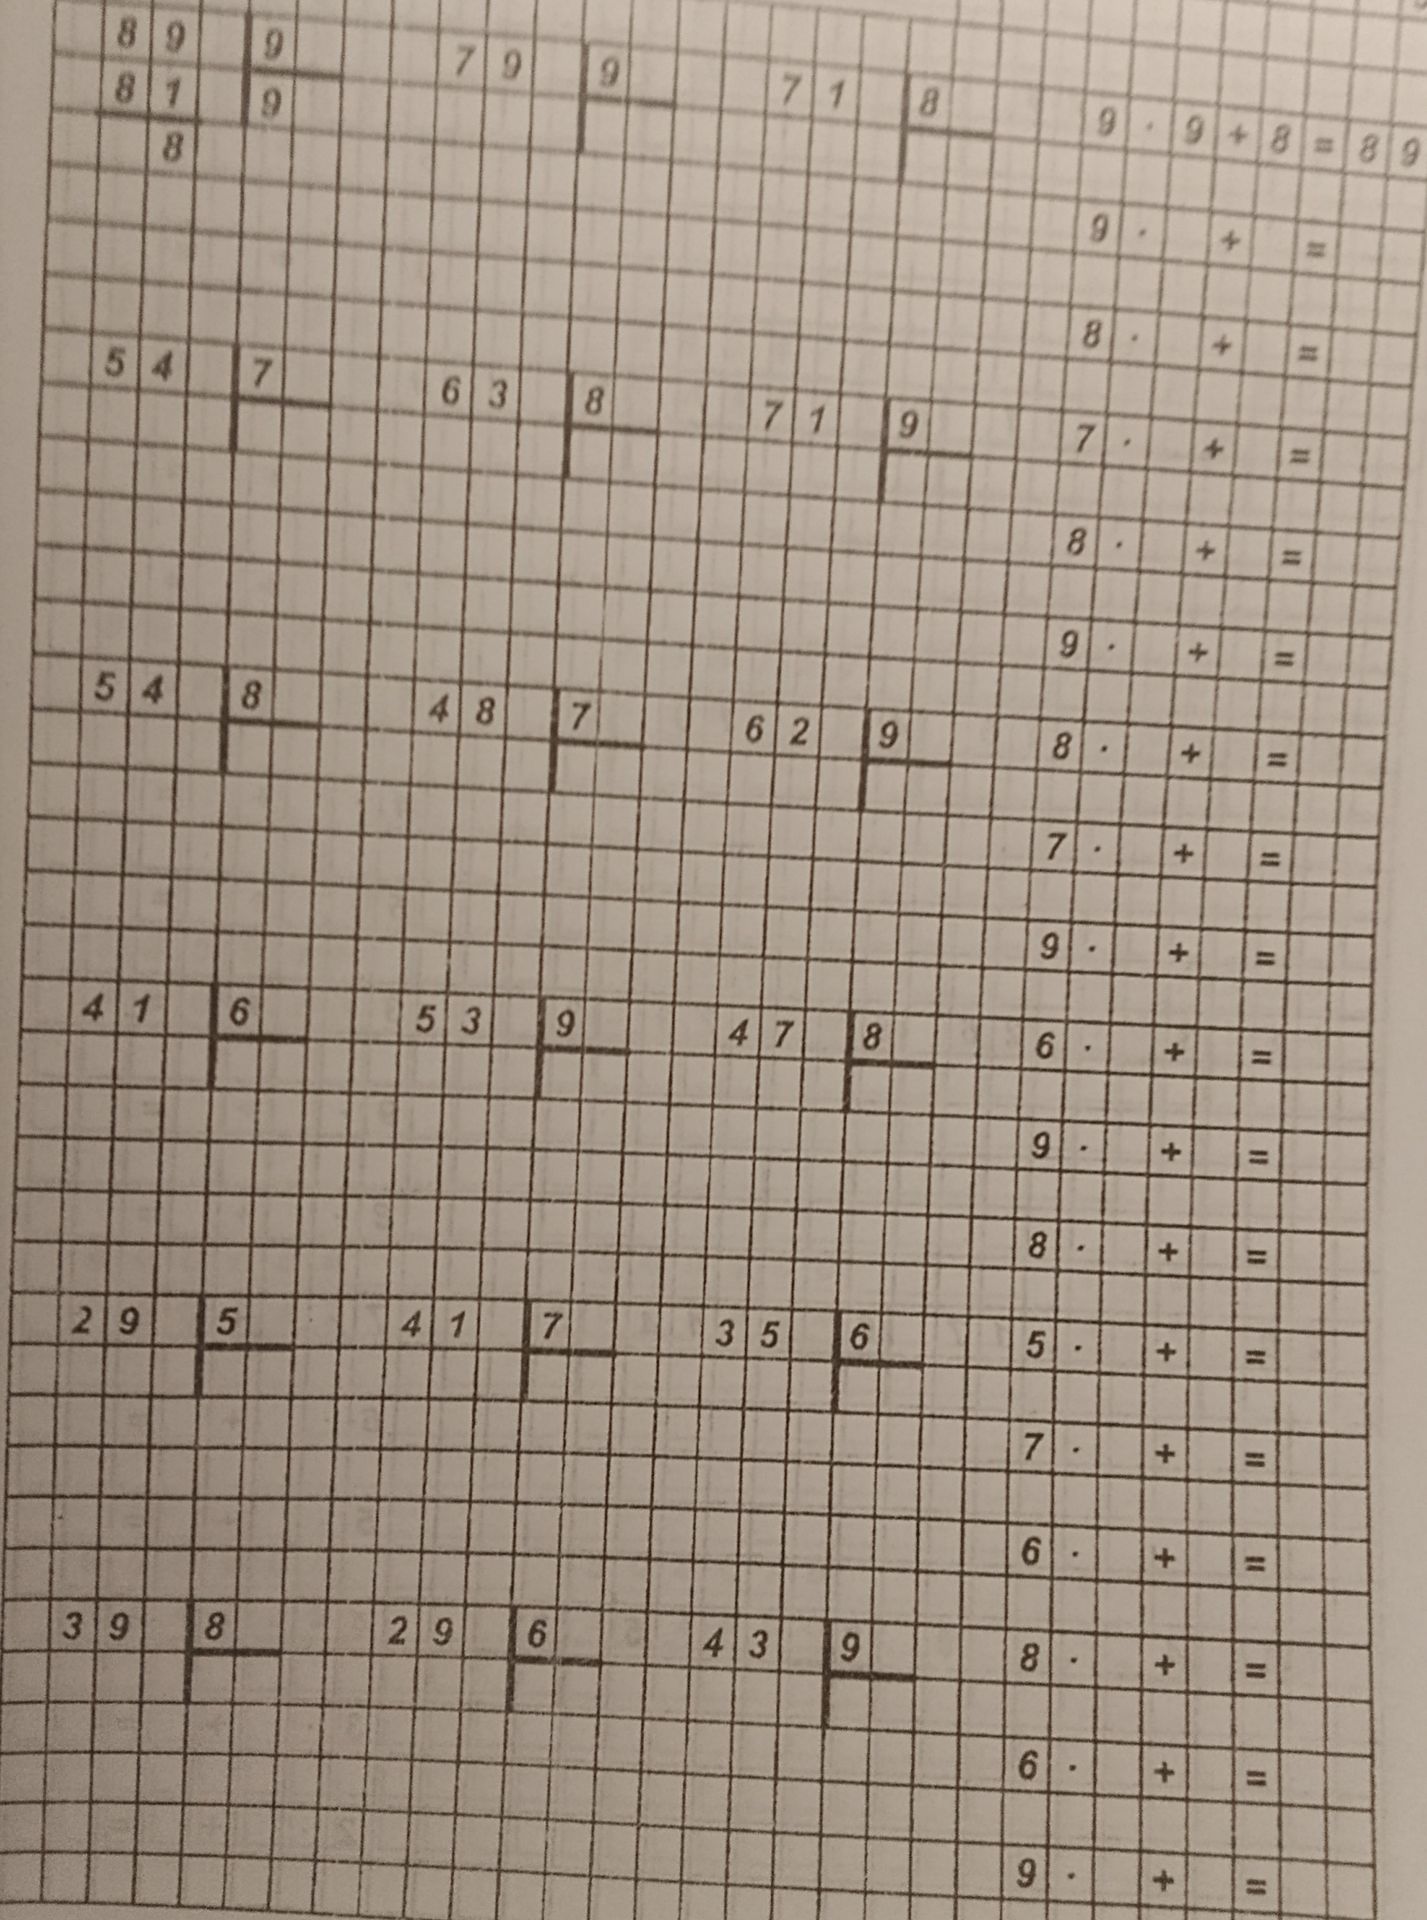 89 9 79 9 71 8 9 · 9 + 8 = 89
81 9
8
9 · + =
8 · + =
54 7 63 8 71 9 7 · + =
8 · + =
9 · + =
54 8 48 7 62 9 8 · + =
7 · + =
9 · + =
41 6 53 9 47 8 6 · + =
9 · + =
8 · + =
29 5 41 7 35 6 5 · + =
7 · + =
6 · + =
39 8 29 6 43 9 8 · + =
6 · + =
9 · + =